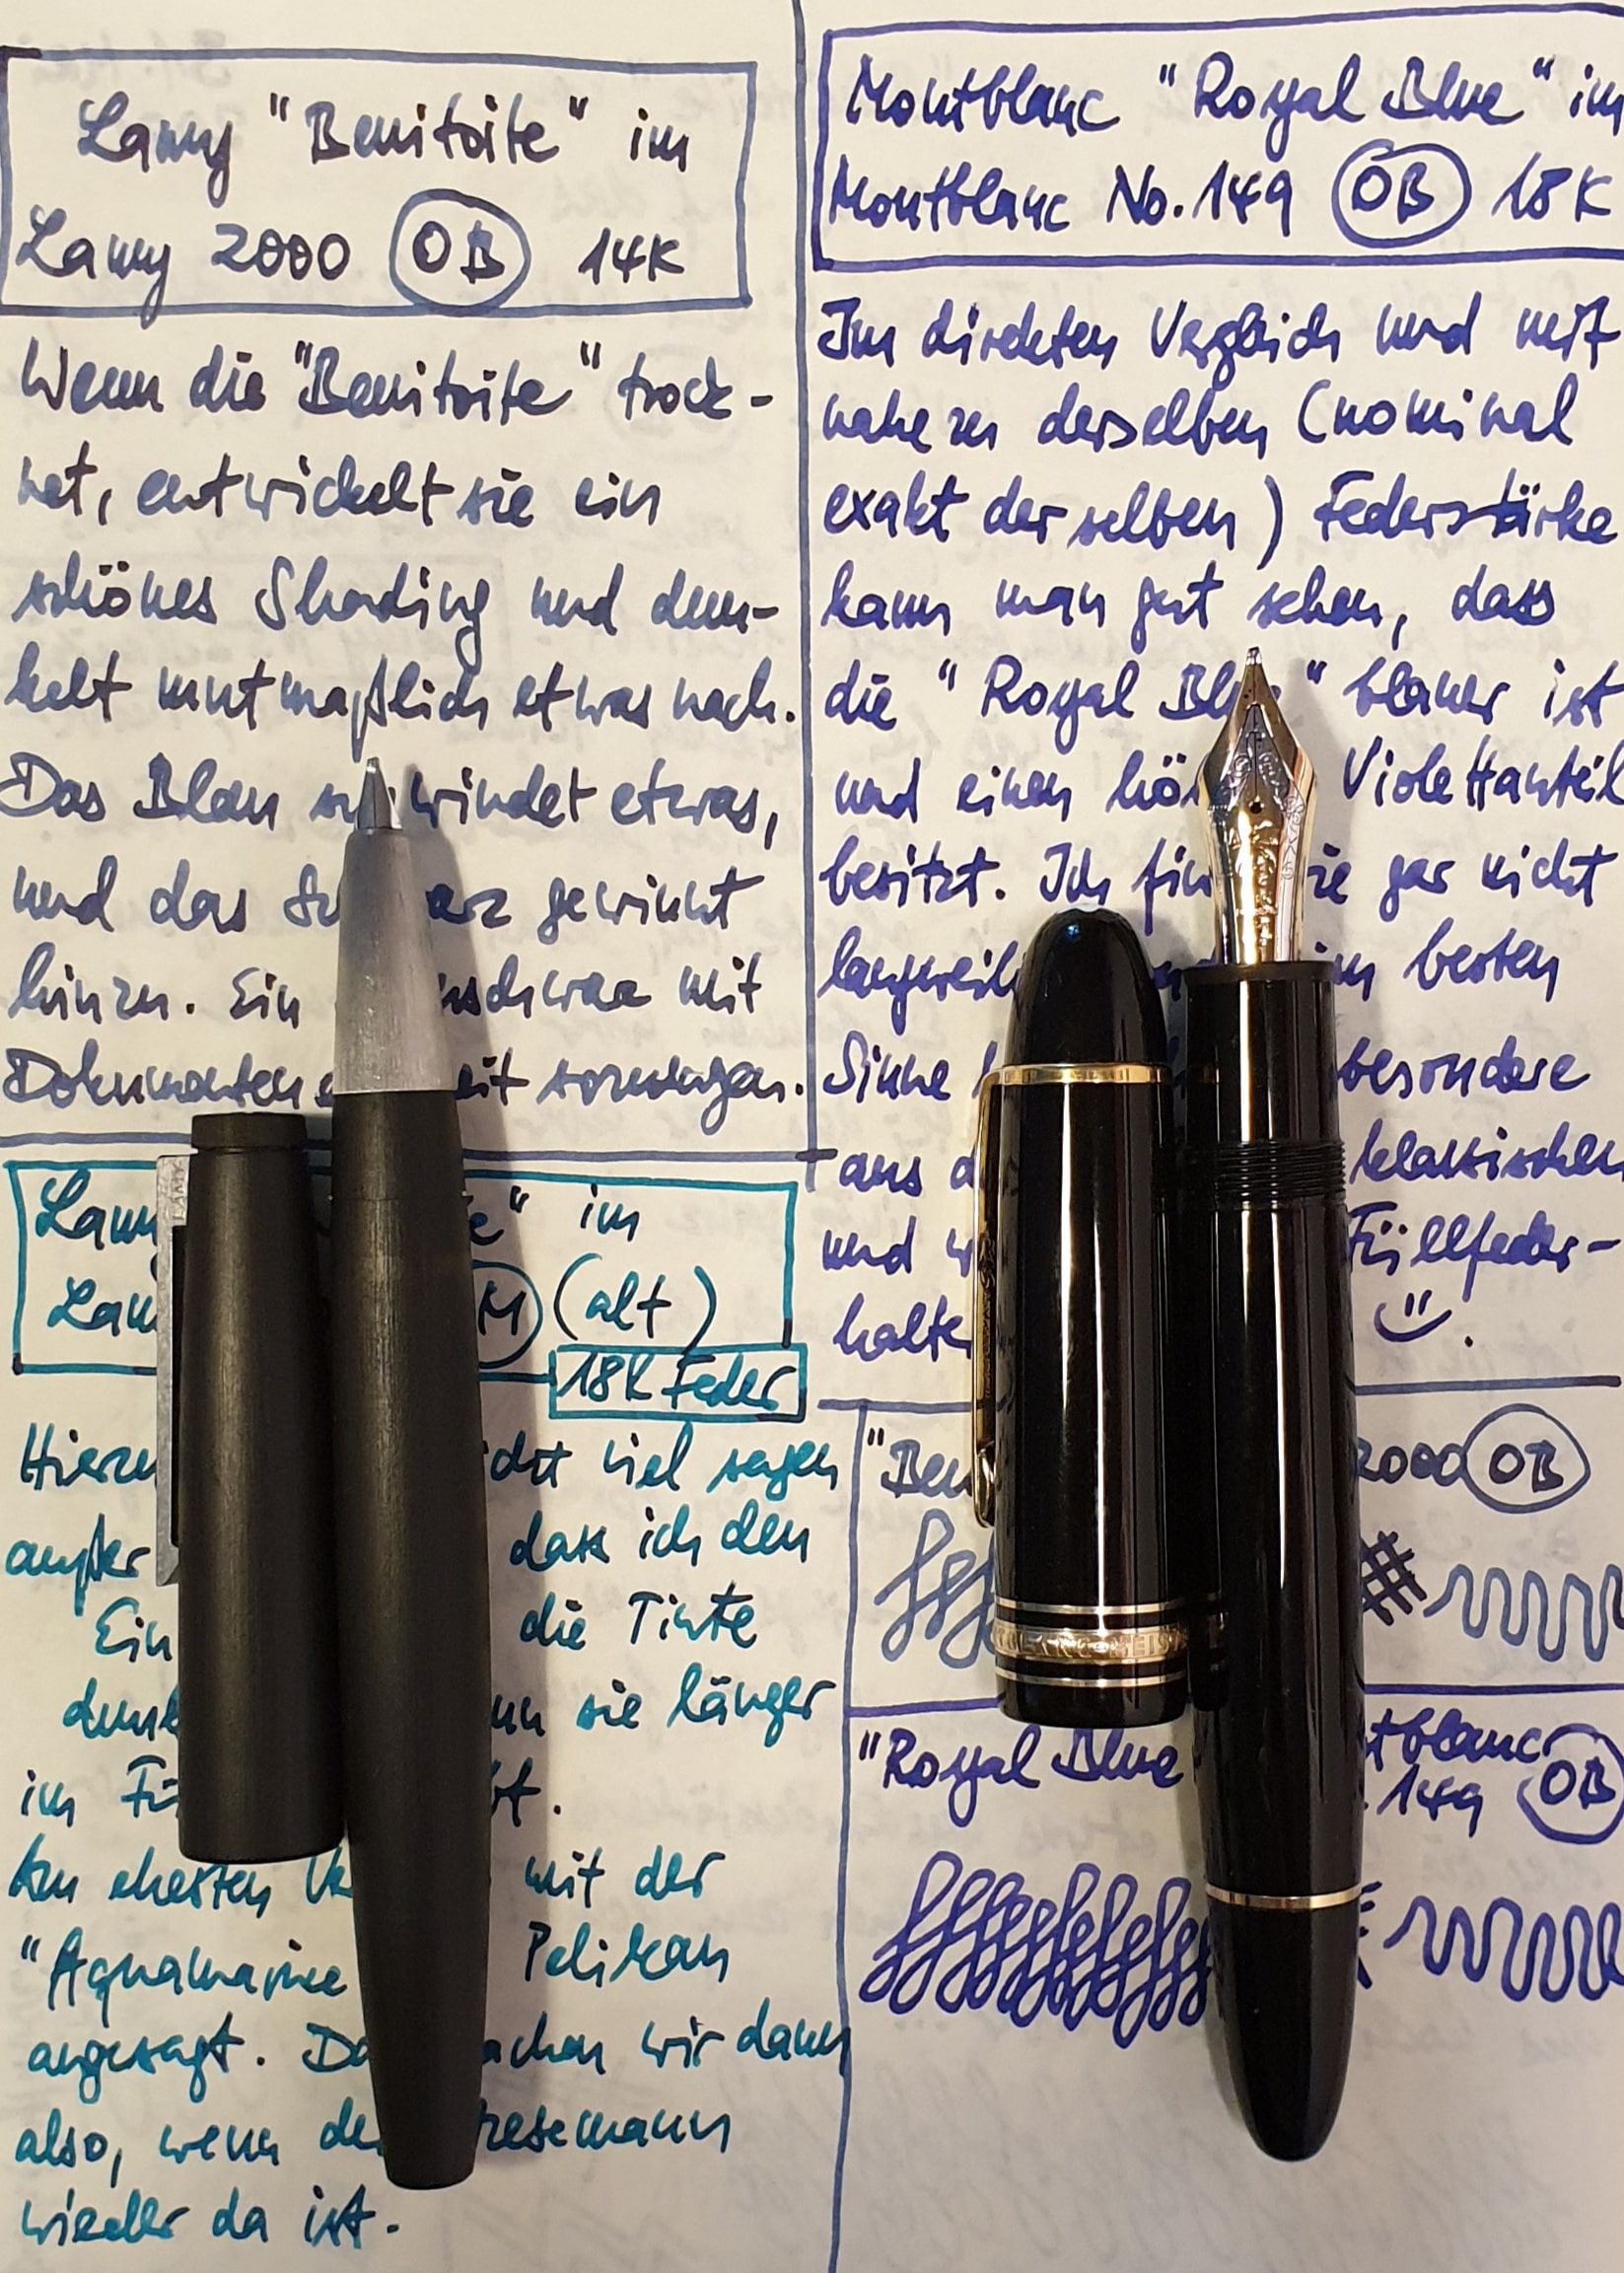 Lamy "Benitoite" im
Lamy 2000 OB 14K
Wenn die "Benitoite" trock-
net, entwickelt sie ein
schönes Shading und dun-
kelt mutmaßlich etwas nach.
Das Blau windet etwas,
und das gewinnt
hinzu. Ein mit
sozusagen.
Lamy im
M (alt)
18K Feder
viel sagen
außer dass ich den
Ein die Tinte
sie länger
im
Am ehesten mit der
"Aquamarine Pelikan
angesagt. wir dann
also, wenn
wieder da ist.
Montblanc "Royal Blue" im
Montblanc No. 149 OB 18K
Im direkten Vergleich und mit
nahezu derselben (nominal
exakt derselben) Federstärke
kann man gut sehen, dass
die "Royal " blauer ist
und einen Violettanteil
besitzt. Ich gar nicht
besten
Sinne besondere
aus klassischen
und Füllfeder-
halte
2000 OB
"Royal Blue
149 OB